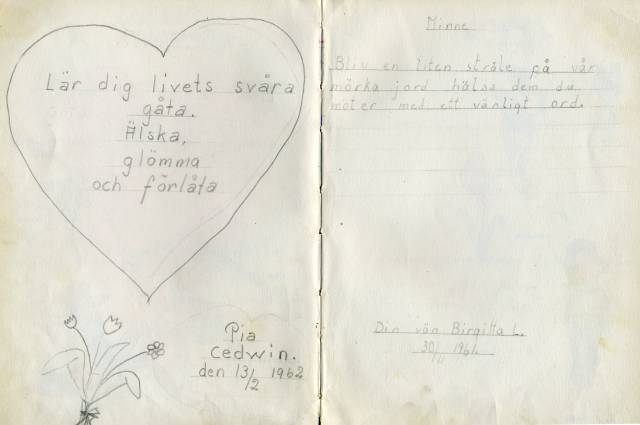 Lär dig livets svåra
gåta.
Älska,
glömma
och förlåta
Pia
Cedwin.
den 13/2 1962
Minne
Bliv en liten stråle på vår
mörka jord hälsa dem du
möter med ett vänligt ord.
Din vän Birgitta L.
30/11 1961.